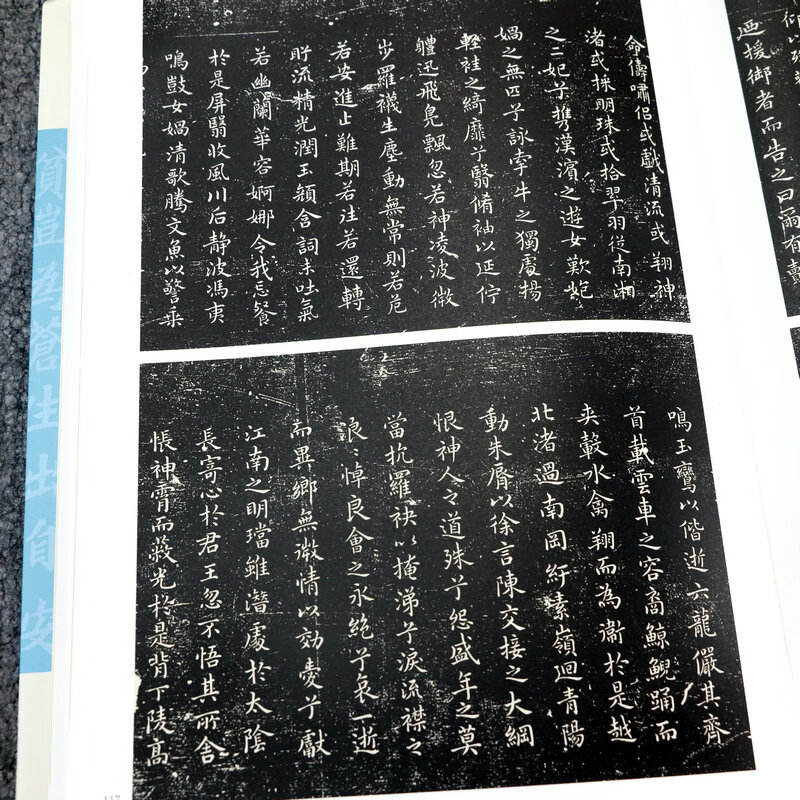 迺援御者而告之曰爾有覿
命儔嘯侶或戲清流或翔神
渚或採明珠或拾翠羽從南湘
之二妃兮攜漢濱之遊女歎匏
媧之無匹兮詠牽牛之獨處揚
輕袿之綺靡兮翳脩袖以延佇
軆迅飛鳧飄忽若神凌波微
步羅襪生塵動無常則若危
若安進止難期若往若還轉
眄流精光潤玉顏含詞未吐氣
若幽蘭華容婀娜令我忘餐
於是屏翳收風川后靜波馮夷
鳴鼓女媧清歌騰文魚以警乘
十五
鳴玉鸞以偕逝六龍儼其齊
首載雲車之容裔鯨鯢踊而
夾轂水禽翔而為衞於是越
北渚過南岡紆素嶺迴青陽
動朱脣以徐言陳交接之大綱
恨神人之道殊兮怨盛年之莫
當抗羅袂以掩涕兮淚流襟之
浪〻悼良會之永絕兮哀一逝
而異鄉無微情以効愛兮獻
江南之明璫雖潛處於太陰
長寄心於君王忽不悟其所舍
悵神霄而蔽光於是背下陵高
豈為蒼生出自安
117